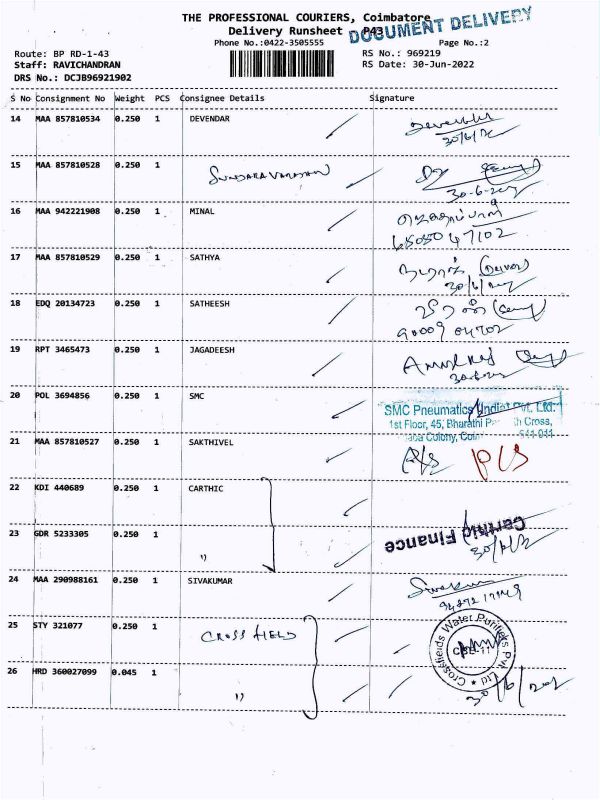 THE PROFESSIONAL COURIERS, Coimbatore
Delivery Runsheet P43
DOCUMENT DELIVERY
Phone No.:0422-3505555
Page No.:2
Route: BP RD-1-43
RS No.: 969219
Staff: RAVICHANDRAN
RS Date: 30-Jun-2022
DRS No.: DCJB96921902
S No Consignment No Weight PCS Consignee Details Signature
14 MAA 857810534 0.250 1 DEVENDAR
15 MAA 857810528 0.250 1 SUNDARAVARADHAN
30-6-2022
16 MAA 942221908 0.250 1 MINAL
17 MAA 857810529 0.250 1 SATHYA
18 EDQ 20134723 0.250 1 SATHEESH
19 RPT 3465473 0.250 1 JAGADEESH
30-6-2022
20 POL 3694856 0.250 1 SMC
SMC Pneumatics (India) Pvt. Ltd.
1st Floor, 45, Bharathi
Cross,
Colony,
21 MAA 857810527 0.250 1 SAKTHIVEL
22 KDI 440689 0.250 1 CARTHIC
23 GDR 5233305 0.250 1 "
Carthic Finance
24 MAA 290988161 0.250 1 SIVAKUMAR
25 STY 321077 0.250 1 CROSS FIELD
Crossfields Water Purifiers Pvt Ltd
CBE-11
26 HRD 360027099 0.045 1 "